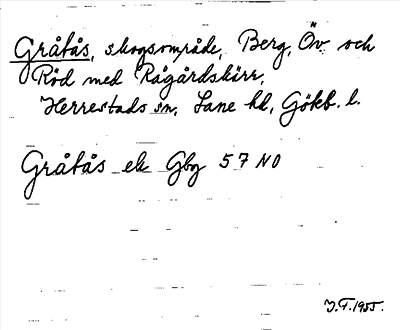 Gråtås, skogsområde, Berg, Öv och
Röd med Rågårdskärr,
Herrestads sn, Lane hd, Götb. l.
Gråtås ek Gbg 57 NO
J.F. 1955.